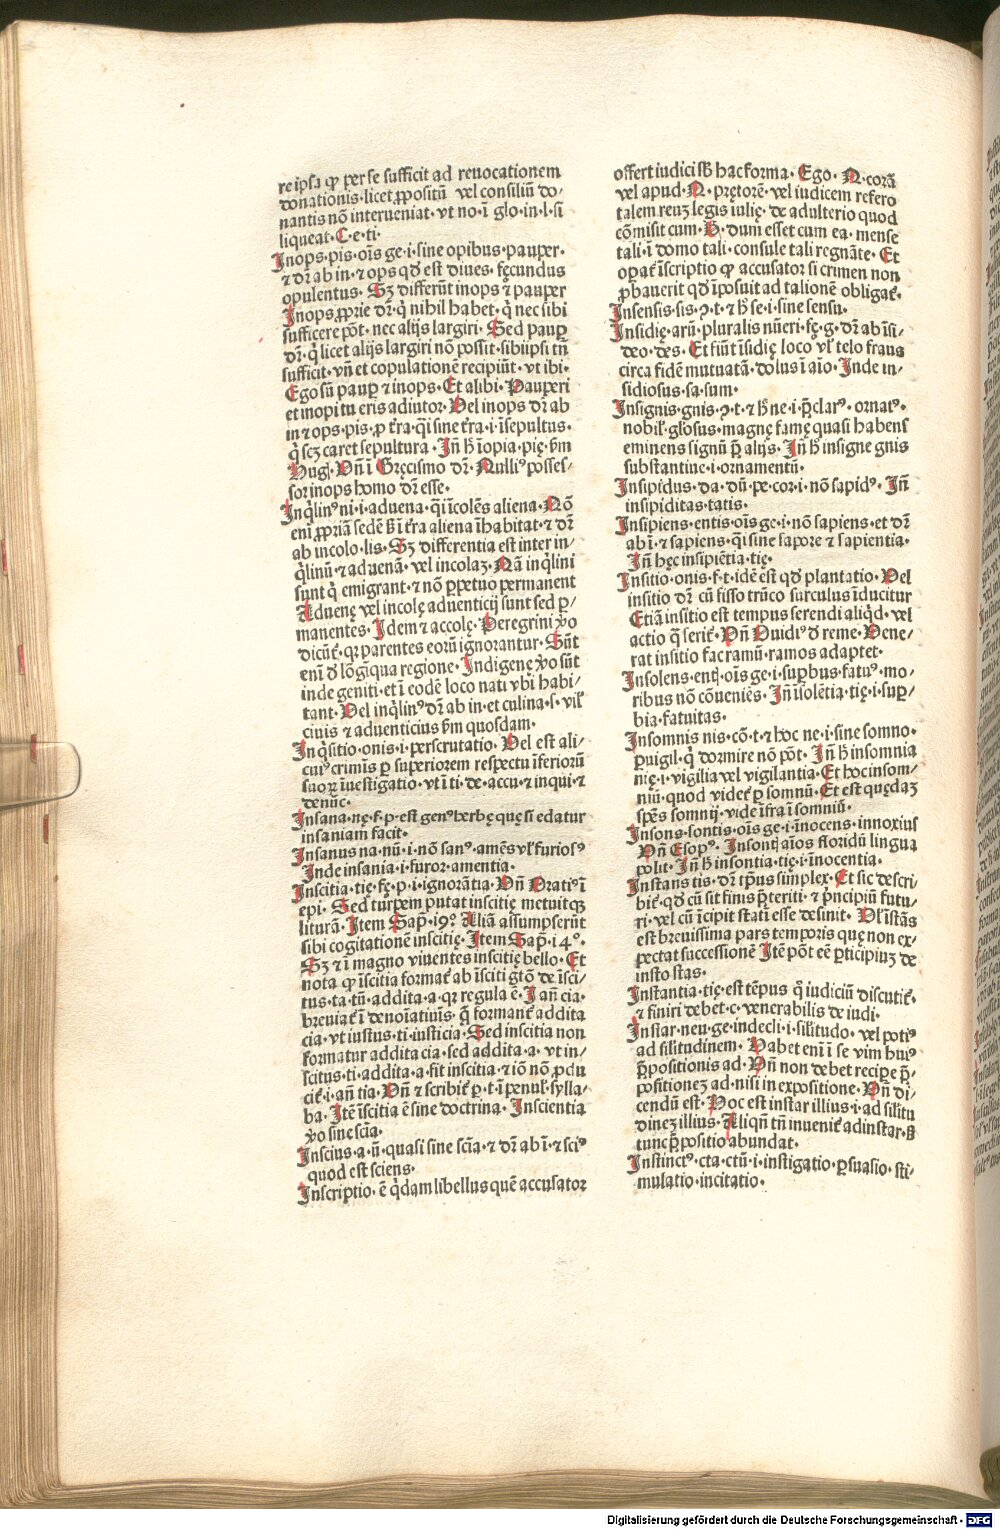 re ipsa ꝙ per se sufficit ad reuocationem
donationis·licet ꝓpositũ vel consiliũ do/
nantis nõ interueniat·vt no·ĩ glo·in·l·si
liqueat·C·e·ti·
Inops·pis·oĩs ge·i·sine opibus·pauper·
⁊ dr̃ ab in·⁊ ops qđ est diues·fęcundus
opulentus· Sꝫ differũt inops ⁊ pauper
Inops ꝓprie dr̃·q̇ nihil habet·q̇ nec sibi
sufficere põt·nec alijs largiri· Sed paupꝑ
dr̃·q̇ licet alijs largiri nõ possit·sibiipsi tñ
sufficit·vñ et copulationẽ recipiũt·vt ibi·
Ego sũ paupꝑ ⁊ inops· Et alibi· Pauperi
et inopi tu eris adiutor· Vel inops dr̃ ab
in ⁊ ops·pis·ꝓ t̃ra·q̇i sine t̃ra·i·ĩsepultus·
q̇ scꝫ caret sepultura· Iñ h̃ ĩopia·pię·ẜm
Hug̃· Vñ ĩ Gręcismo dr̃· Nulliꝰ posses/
sor inops homo dr̃ esse·
Inq̇linꝰ ni·i·aduena·q̇i ĩcolẽs aliena· Nõ
eni ꝓpriã sedẽ ẜ ĩ t̃ra aliena ĩhabitat·⁊ dr̃
ab incolo·lis· Sꝫ differentia est inter in/
q̇linũ·⁊ aduenã·vel incolaꝫ· Nã inq̇lini
sunt q̇ emigrant·⁊ nõ ꝑpetuo permanent
Aduenę vel incolę aduenticij sunt sed ꝑ/
manentes· Idem ⁊ accolę· Peregrini ṽo
dicũt̃·qꝛ parentes eorũ ignorantur· Sũt
enĩ đ lõgĩqua regione· Indigenę ṽo sũt
inde geniti·et ĩ eodẽ loco nati vbi habi/
tant· Vel inq̇linꝰ dr̃ ab in·et culina·s·vil̃
ciuis ⁊ aduenticius ẜm quosdam·
Inq̇sitio·onis·i·perscrutatio· Vel est ali/
cuiꝰ crimĩs ꝑ superiorem respectu ĩferiorũ
suoꝝ ĩuestigatio·vt ĩ ti·de·accu·⁊ inqui·⁊
denũc·
Insana·nę·f·p·est genꝰ herbę quę si edatur
insaniam facit·
Insanus na·nũ·i·nõ sanꝰ·amẽs vl̃ furiosꝰ
Inde insania·i·furor·amentia·
Inscitia·tię·fę·p·i·ignorãtia· Vñ Oratiꝰ ĩ
epi· Sed turpem putat inscitię metuitqꝫ
liturã· Item Sap̃·19ͦ· Aliã assumpserũt
sibi cogitationẽ inscitię· Item Sap̃·14ͦ·
Sꝫ ⁊ ĩ magno viuentes inscitię bello· Et
nota ꝙ ĩscitia format̃ ab ĩsciti gt̃õ de ĩsci/
tus·ta·tũ·addita·a·qꝛ regula ẽ· I an̄ cia·
breuiat̃ ĩ denoĩatiuis·q̇ formant̃ addita
cia·vt iustus·ti·iusticia· Sed inscitia non
formatur addita cia·sed addita·a·vt in/
scitus·ti·addita·a·fit inscitia·⁊ iõ nõ ꝓdu
cit̃·i·an̄ tia· Vñ ⁊ scribit̃ ꝑ·t·ĩ penul̃·sylla/
ba· Itẽ ĩscitia ẽ sine doctrina· Inscientia
ṽo sine scĩa·
Inscius·a·ũ·quasi sine scĩa·⁊ dr̃ ab ĩ·⁊ sciꝰ
quod est sciens·
Inscriptio·ẽ q̇dam libellus quẽ accusator
offert iudici sb̃ hac forma· Ego· N·corã
vel apud·N·prętorẽ·vel iudicem refero
talem reuꝫ legis iulię·de adulterio quod
cõmisit cum·H·dum esset cum ea·mense
tali·ĩ domo tali·consule tali regnãte· Et
opat̃ ĩscriptio ꝙ accusator si crimen non
ꝓbauerit qđ ĩposuit ad talionẽ obligat̃·
Insensis·sis·ꝯ·t·⁊ h̃ se·i·sine sensu·
Insidię·arũ·pluralis nũeri·fę·g·dr̃ ab ĩsi/
deo·des· Et fiũt ĩsidię loco vl̃ telo fraus
circa fidẽ mutuatã·dolus ĩ aĩo· Inde in/
sidiosus·sa·sum·
Insignis·gnis·ꝯ·t·⁊ h̃ ne·i·p̃clarꝰ·ornatꝰ·
nobil̃·gl̃osus·magnę famę quasi habens
eminens signũ p̃ alijs· Iñ h̃ insigne gnis
substantiue·i·ornamentũ·
Insipidus·da·dũ·pe·cor·i·nõ sapidꝰ· Iñ
insipiditas·tatis·
Insipiens·entis·oĩs ge·i·nõ sapiens·et dr̃
ab ĩ·⁊ sapiens·q̇i sine sapore ⁊ sapientia·
Iñ hęc insipiẽtia·tię·
Insitio·onis·f·t·idẽ est qđ plantatio· Vel
insitio dr̃ cũ fisso trũco surculus ĩducitur
Etiã insitio est tempus serendi aliq̇d·vel
actio q̃ serit̃· Vñ Ouidiꝰ đ reme· Vene/
rat insitio fac ramũ·ramos adaptet·
Insolens·entꝭ·oĩs ge·i·suꝑbus·fatuꝰ·mo/
ribus nõ cõueniẽs· Iñ ĩsolẽtia·tię·i·suꝑ/
bia·fatuitas·
Insomnis nis·cõ·t·⁊ hoc ne·i·sine somno·
ꝑuigil·q̇ dormire nõ põt· Iñ h̃ insomnia
nię·i·vigilia vel vigilantia· Et hoc insom/
niũ·quod videt̃ ꝑ somnũ· Et est quędaꝫ
spẽs somnij·vide ĩfra ĩ somniũ·
Insons·sontis·oĩs ge·i·ĩnocens·innoxius
Vñ Esopꝰ· Insontꝭ aĩos floridũ lingua
polit· Iñ h̃ insontia·tię·i·ĩnocentia·
Instans tis·dr̃ tp̃us simplex· Et sic descri
bit̃·qđ cũ sit finis p̃teriti·⁊ p̃ncipiũ futu/
ri·vel cũ ĩcipit stati esse desinit· Vl̃ ĩstãs
est breuissima pars temporis quę non ex/
pectat successionẽ Itẽ põt eẽ ꝑticipiuꝫ de
insto stas·
Instantia·tię·est tẽpus q̃ iudiciũ discutit̃·
⁊ finiri debet·c·venerabilis de iudi·
Instar·neu·ge·indecli·i·sil̃itudo·vel potiꝰ
ad sil̃itudinem· Habet enĩ ĩ se vim huiꝰ
p̃positionis ad· Vñ non debet recipe p̃/
positionez ad·nisi in expositione· Vñ di/
cendũ est· Hoc est instar illius·i·ad sil̃itu
dineꝫ illius· Aliqñ tñ inuenit̃ ad instar·ẜ
tunc p̃positio abundat·
Instinctꝰ·cta·ctũ·i·instigatio·ꝑsuasio·sti/
mulatio·incitatio·
Digitalisierung gefördert durch die Deutsche Forschungsgemeinschaft - DFG